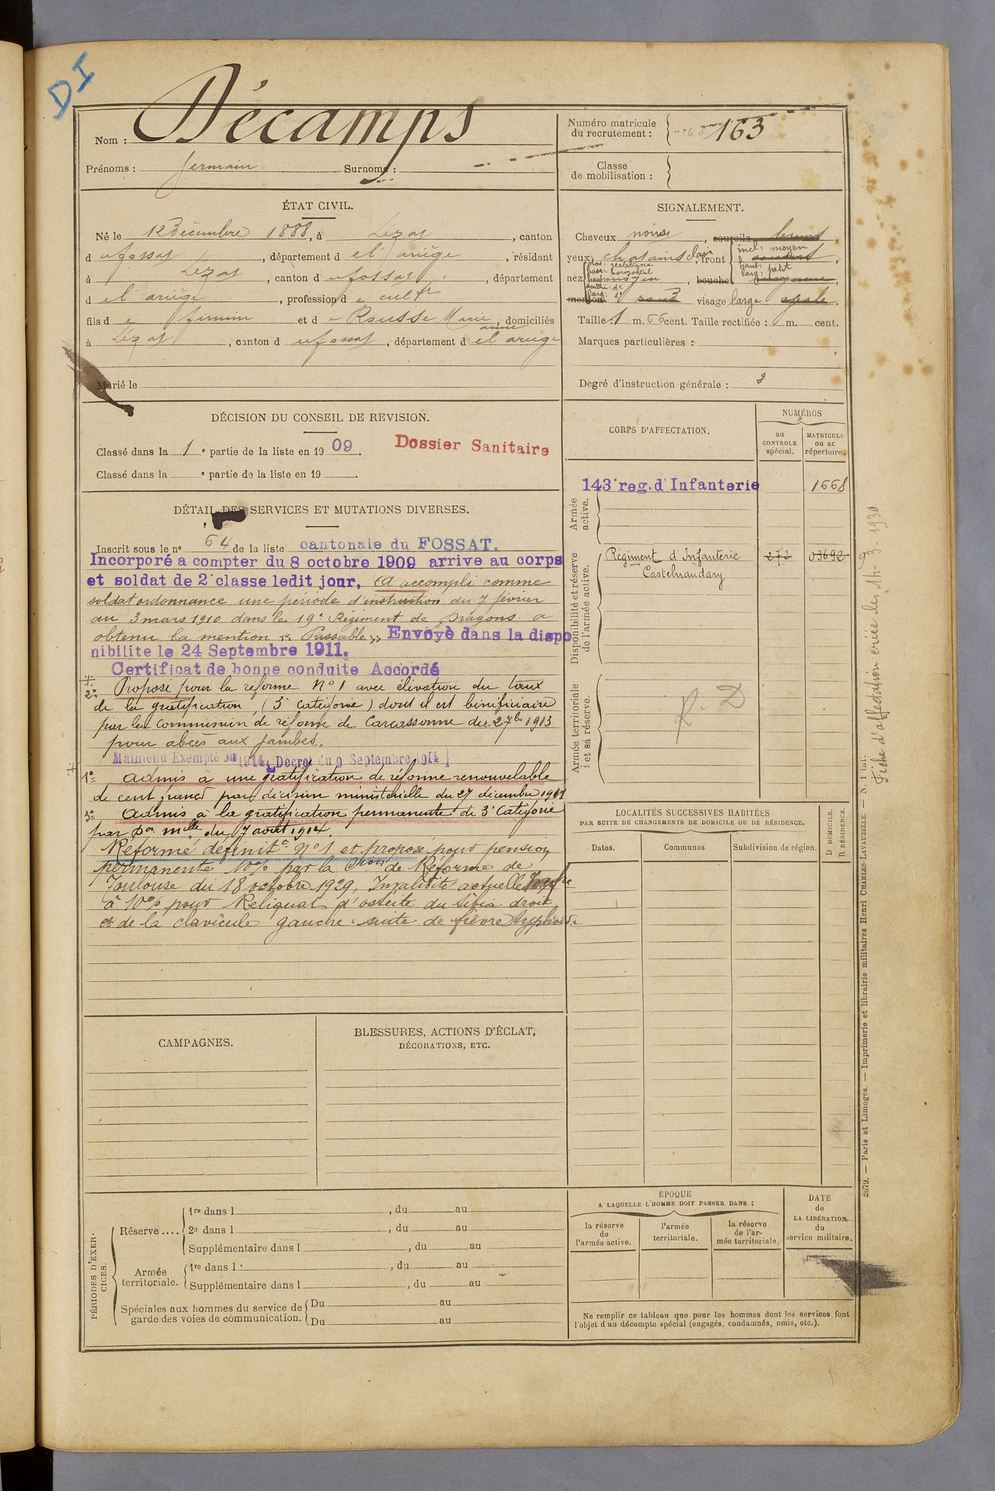 DI
Nom : Décamps
Prénoms : Germain Surnoms :
Numéro matricule du recrutement : 163
Classe de mobilisation :
ÉTAT CIVIL.
Né le 12 décembre 1888, à Lézat, canton
d u fossat, département d el ariège, résidant
à Lézat, canton d u fossat, département
d el ariège, profession d e cultr
fils d e firmin et d e Rousse Marie, domiciliés
à Lézat, canton d u fossat, département d el ariège
Marié le
SIGNALEMENT.
Cheveux noirs, sourcils bruns,
yeux chatains clair, front incl: moyen haut: petit
nez dos: rectiligne base: horizontal moyen, bouche moyenne
menton rond visage large ovale.
Taille : 1 m. 66 cent. Taille rectifiée : m. cent.
Marques particulières :
Degré d'instruction générale : 3
DÉCISION DU CONSEIL DE REVISION.
Classé dans la 1e partie de la liste en 19 09.
Classé dans la e partie de la liste en 19
Dossier Sanitaire
DÉTAIL DES SERVICES ET MUTATIONS DIVERSES.
Inscrit sous le n° 64 de la liste cantonale du FOSSAT.
Incorporé a compter du 8 octobre 1909 arrive au corps
et soldat de 2e classe ledit jour, A accompli comme
soldat ordonnance une période d'instruction du 7 février
au 3 mars 1910 dans le 19e Régiment de Dragons a
obtenu la mention « Passable » Envoyé dans la dispo
nibilité le 24 Septembre 1911.
Certificat de bonne conduite Accordé
2° Proposé pour la réforme N° 1 avec élévation du taux
de la gratification (3e Catégorie) dont il est bénéficiaire
par la Commission de réforme de Carcassonne du 27 bre 1913
pour abcès aux jambes.
Maintenu Exempté en 1914 [Décret du 9 Septembre 1914]
1° Admis à une gratification de réforme renouvelable
de cent francs par décision ministérielle du 27 décembre 1911
3° Admis à la gratification permanente de 3e Catégorie
par Don mlle du 7 août 1914.
Réformé définitt n° 1 et proposé pour pension
permanente 10% par la Cson de Réforme de
Toulouse du 18 octobre 1929, Invalidité actuelle
à 10% pour Reliquat d'ostéite du tibia droit
et de la clavicule gauche suite de fièvre typhoïde
CORPS D'AFFECTATION.
NUMÉROS
au CONTROLE spécial.
MATRICULE ou au répertoire.
Armée active.
143e reg. d'Infanterie 1668
Disponibilité et réserve de l'armée active.
Régiment d'Infanterie 272 03692
Castelnaudary
Armée territoriale et sa réserve.
R. D
LOCALITÉS SUCCESSIVES HABITÉES
PAR SUITE DE CHANGEMENTS DE DOMICILE OU DE RÉSIDENCE.
Dates. Communes Subdivision de région. D DOMICILE. R RÉSIDENCE.
CAMPAGNES.
BLESSURES, ACTIONS D'ÉCLAT,
DÉCORATIONS, ETC.
PÉRIODES D'EXERCICES.
Réserve....
1re dans l , du au
2e dans l , du au
Supplémentaire dans l , du au
Armée territoriale.
1re dans l : , du au
Supplémentaire dans l , du au
Spéciales aux hommes du service de garde des voies de communication.
Du au
Du au
ÉPOQUE
A LAQUELLE L'HOMME DOIT PASSER DANS :
la réserve de l'armée active.
l'armée territoriale.
la réserve de l'armée territoriale.
DATE de LA LIBÉRATION, du service militaire.
Ne remplir ce tableau que pour les hommes dont les services font
l'objet d'un décompte spécial (engagés, condamnés, omis, etc.).
2079. — Paris et Limoges. — Imprimerie et librairie militaires Henri CHARLES-LAVAUZELLE. — N. 1 int.
Fiche d'affectation créée le 14-3-1930